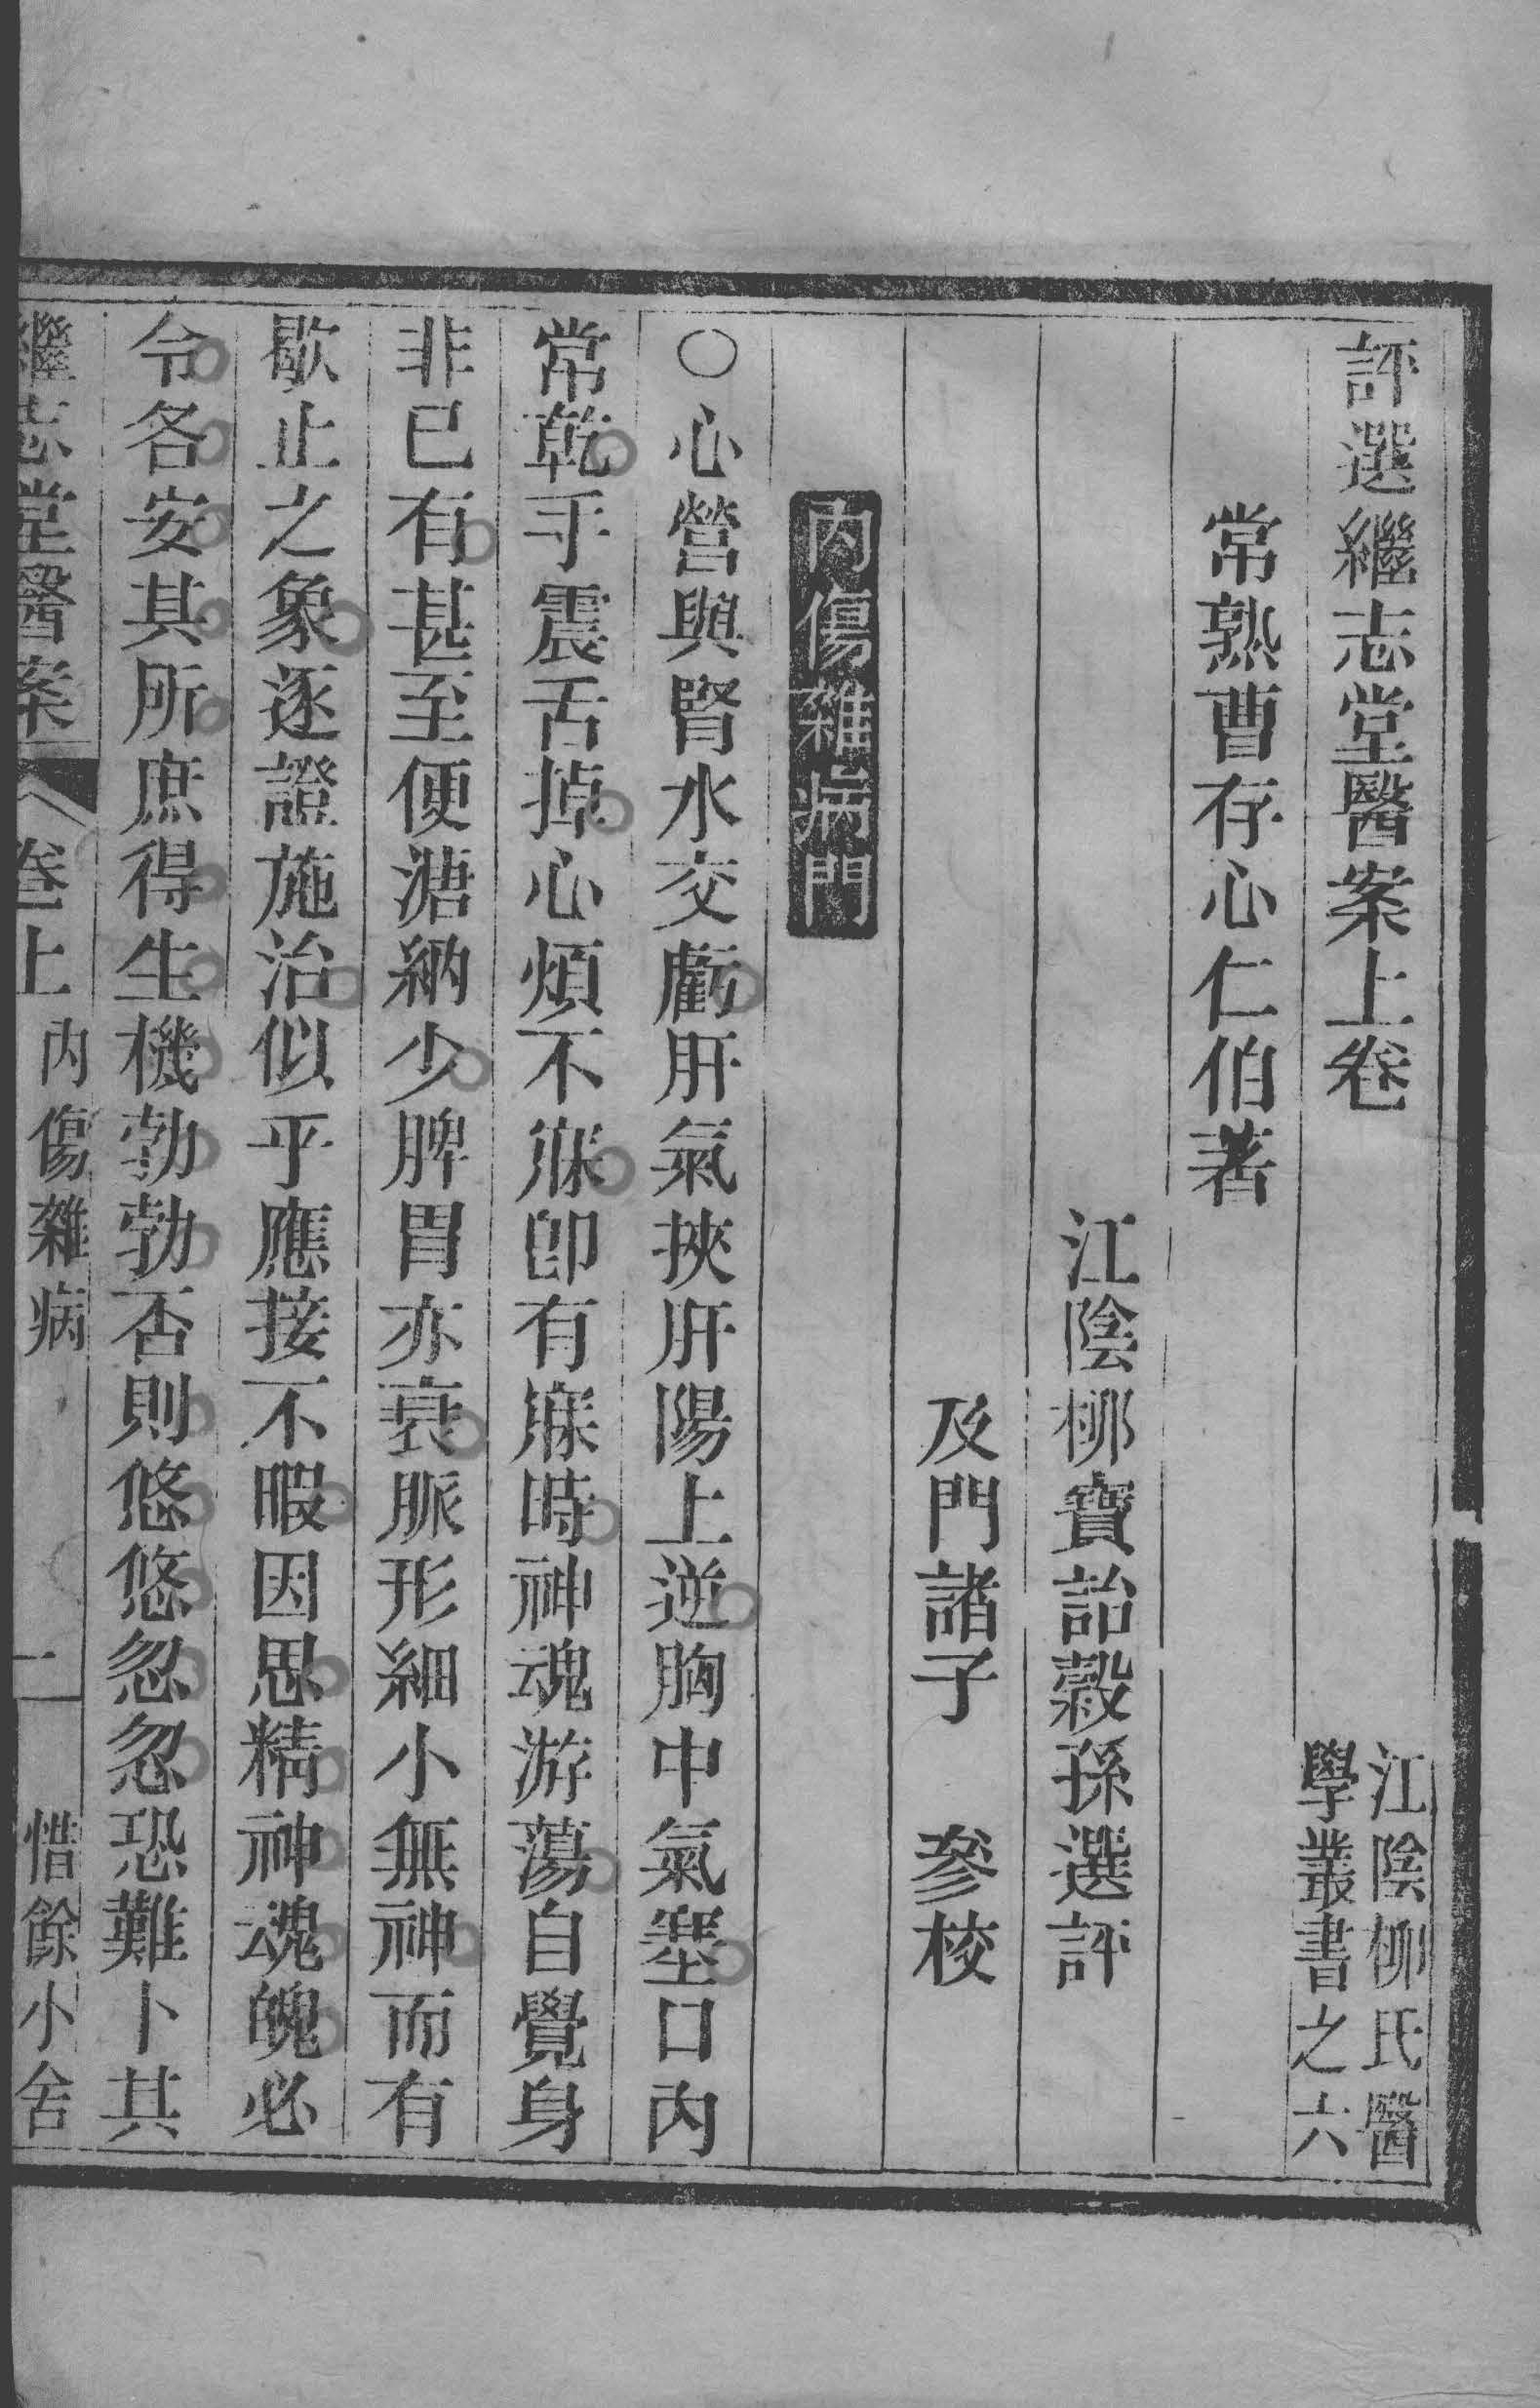 評選繼志堂醫案上卷
江陰柳氏醫
學叢書之六
常熟曹存心仁伯著
江陰柳寶詒穀孫選評
及門諸子　參校
內傷雜病門
○心營與腎水交虧肝氣挾肝陽上逆胸中氣塞口內
常乾手震舌掉心煩不寐卽有寐時神魂游蕩自覺身
非已有甚至便溏納少脾胃亦衰脈形細小無神而有
歇止之象逐證施治似乎應接不暇因思精神魂魄必
令各安其所庶得生機勃勃否則悠悠忽忽恐難卜其
繼志堂醫案　卷上　內傷雜病　二　惜餘小舍